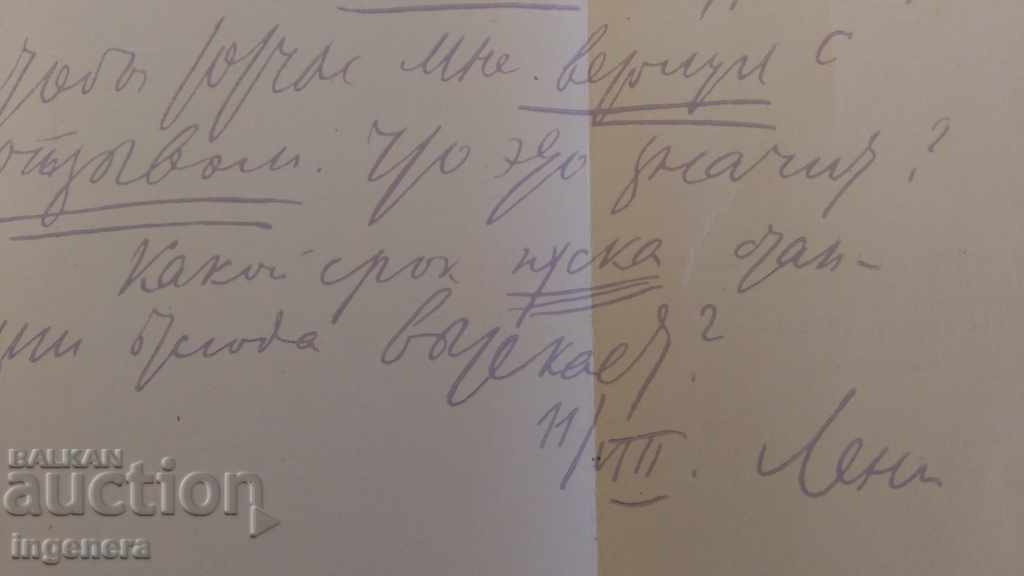 чтобы мне вернули с
отзывом. Что это значит?
Какой срок пуска стан-
ции отсюда вытекает?
11/VIII. Лени
BALKAN
auction
ingenera